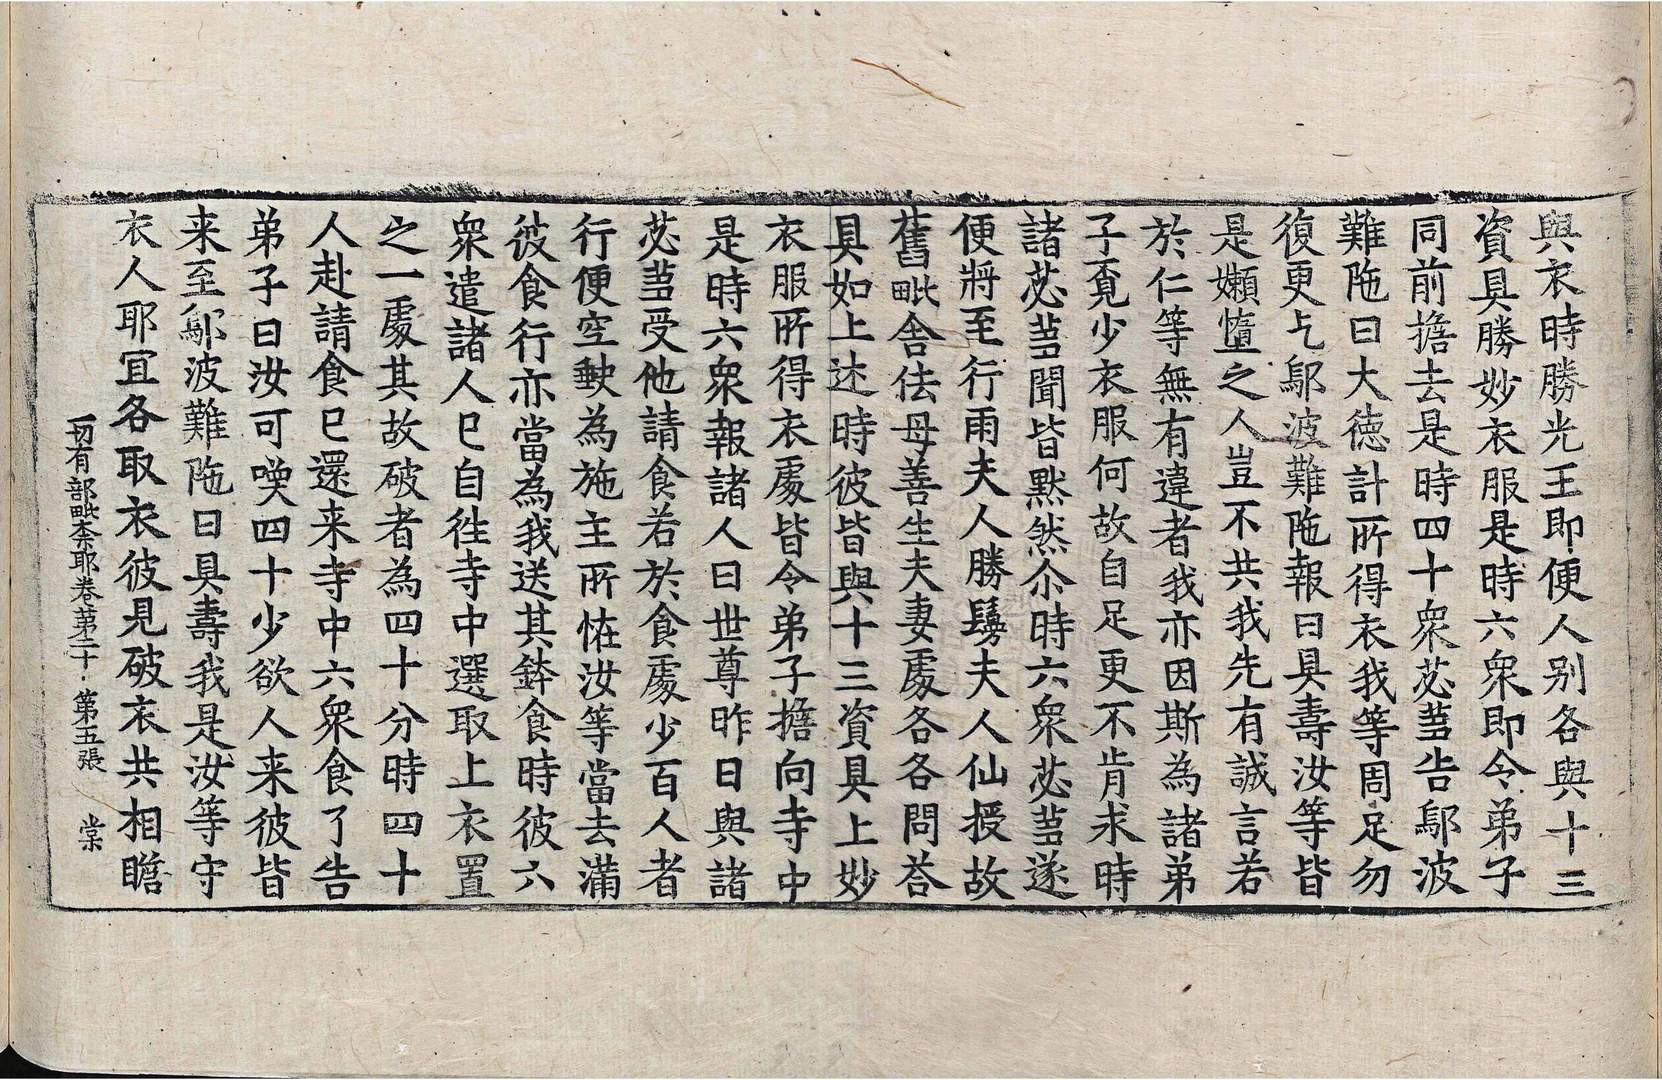 與衣時勝光王即便人别各與十三
資具勝妙衣服是時六衆即令弟子
同前擔去是時四十衆苾蒭告鄔波
難陁曰大徳計所得衣我等周足勿
復更乞鄔波難陁報曰具壽汝等皆
是嬾憧之人豈不共我先有誠言若
於仁等無有違者我亦因斯為諸弟
子覔少衣服何故自足更不肯求時
諸苾蒭聞皆黙然尒時六衆苾蒭遂
便將至行雨夫人勝鬘夫人仙授故
舊毗舍佉母善生夫妻處各各問荅
具如上述時彼皆與十三資具上妙
衣服所得衣處皆令弟子擔向寺中
是時六衆報諸人曰世尊昨日與諸
苾蒭受他請食若於食處少百人者
行便空𡙇為施主所恠汝等當去滿
彼食行亦當為我送其鉢食時彼六
衆遣諸人已自徃寺中選取上衣置
之一處其故破者為四十分時四十
人赴請食已還来寺中六衆食了告
弟子曰汝可喚四十少欲人来彼皆
来至鄔波難陁曰具壽我是汝等守
衣人耶冝各取衣彼見破衣共相瞻
一切有部毗奈耶卷苐二十 第五張 棠